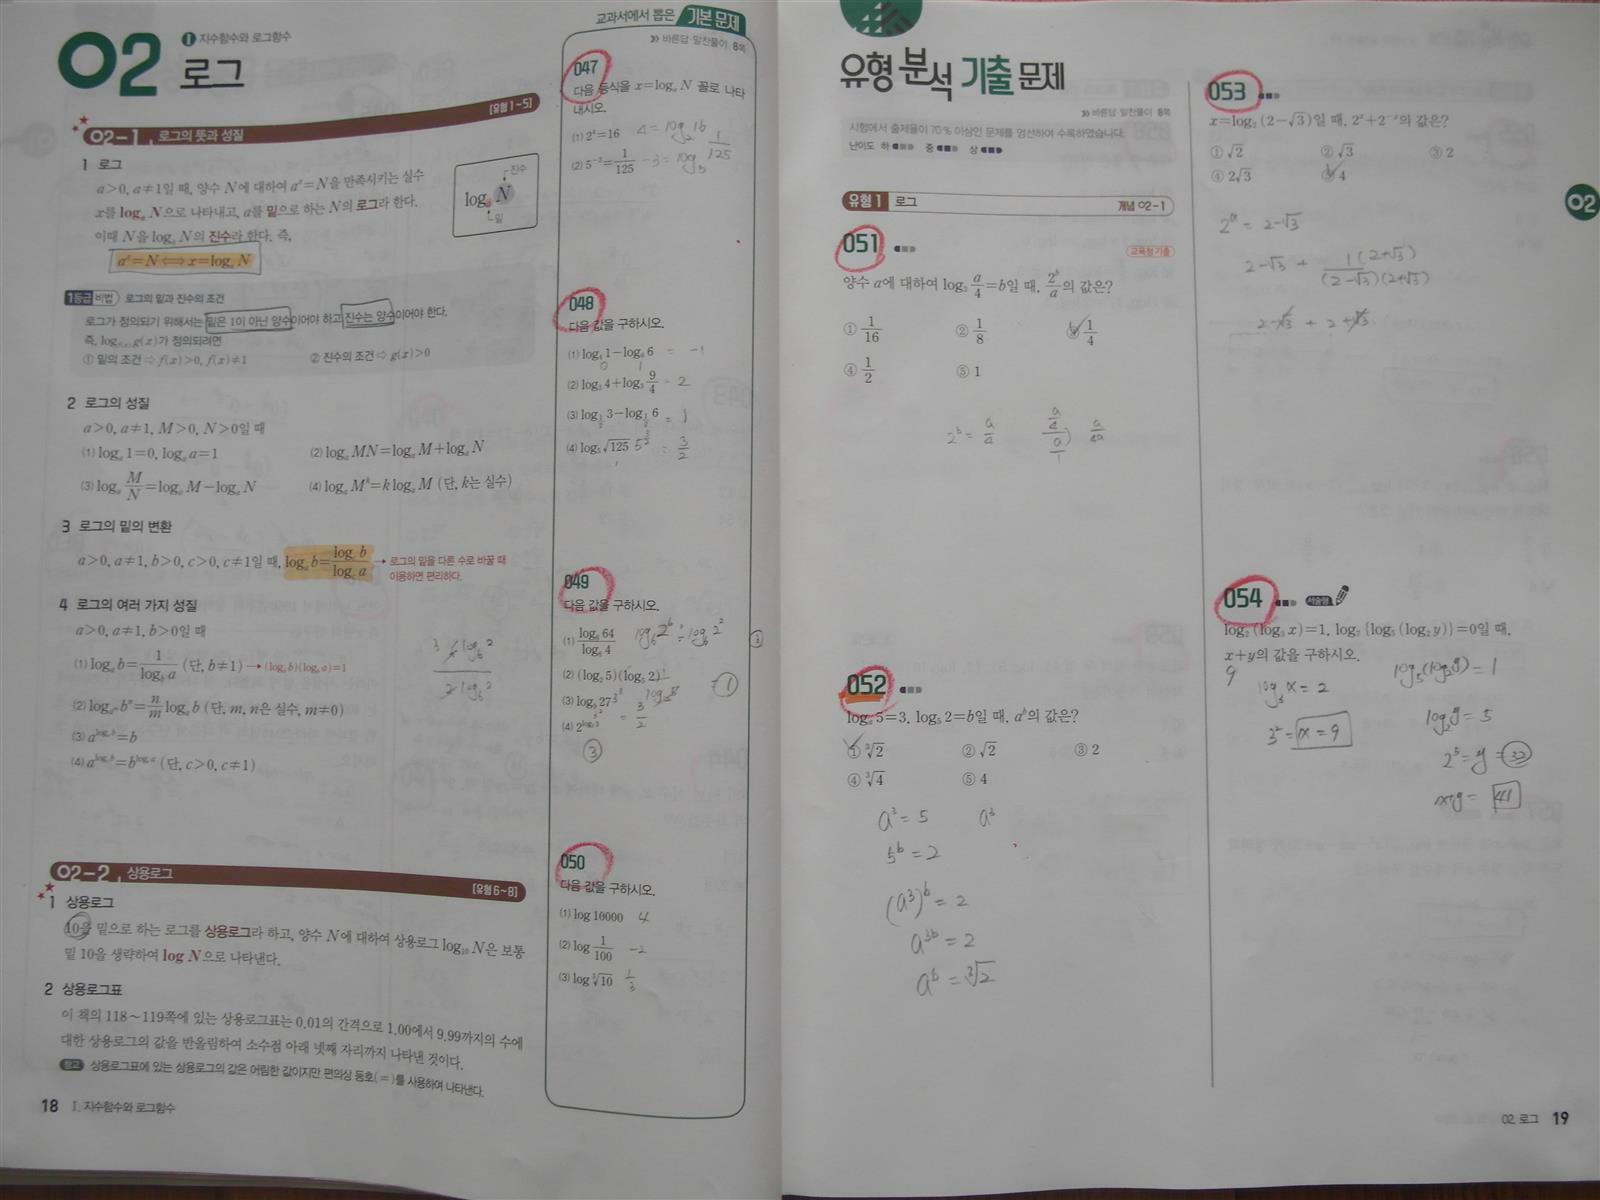 02
Ⅰ 지수함수와 로그함수
로그
02-1 로그의 뜻과 성질 [유형 1~5]
1 로그
a>0, a≠1일 때, 양수 N에 대하여 aˣ=N을 만족시키는 실수
x를 logₐ N으로 나타내고, a를 밑으로 하는 N의 로그라 한다.
이때 N을 logₐ N의 진수라 한다. 즉,
aˣ=N ⟺ x=logₐ N
진수
logₐ N
밑
1등급 비법 로그의 밑과 진수의 조건
로그가 정의되기 위해서는 밑은 1이 아닌 양수이어야 하고 진수는 양수이어야 한다.
즉, log_f(x) g(x)가 정의되려면
① 밑의 조건 ⇨ f(x)>0, f(x)≠1 ② 진수의 조건 ⇨ g(x)>0
2 로그의 성질
a>0, a≠1, M>0, N>0일 때
(1) logₐ 1=0, logₐ a=1 (2) logₐ MN=logₐ M+logₐ N
(3) logₐ M/N=logₐ M-logₐ N (4) logₐ Mᵏ=k logₐ M (단, k는 실수)
3 로그의 밑의 변환
a>0, a≠1, b>0, c>0, c≠1일 때, logₐ b=log_c b/log_c a → 로그의 밑을 다른 수로 바꿀 때
이용하면 편리하다.
4 로그의 여러 가지 성질
a>0, a≠1, b>0일 때
(1) logₐ b=1/log_b a (단, b≠1) → (logₐ b)(log_b a)=1
(2) log_aᵐ bⁿ=n/m logₐ b (단, m, n은 실수, m≠0)
(3) a^(logₐ b)=b
(4) a^(log_c b)=b^(log_c a) (단, c>0, c≠1)
02-2 상용로그 [유형 6~8]
1 상용로그
10을 밑으로 하는 로그를 상용로그라 하고, 양수 N에 대하여 상용로그 log₁₀ N은 보통
밑 10을 생략하여 log N으로 나타낸다.
2 상용로그표
이 책의 118~119쪽에 있는 상용로그표는 0.01의 간격으로 1.00에서 9.99까지의 수에
대한 상용로그의 값을 반올림하여 소수점 아래 넷째 자리까지 나타낸 것이다.
참고 상용로그표에 있는 상용로그의 값은 어림한 값이지만 편의상 등호(=)를 사용하여 나타낸다.
18 Ⅰ. 지수함수와 로그함수
교과서에서 뽑은 기본 문제
» 바른답·알찬풀이 8쪽
047
다음 등식을 x=logₐ N 꼴로 나타
내시오.
(1) 2⁴=16 4=log₂16
(2) 5⁻³=1/125 -3=log₅ 1/125
048
다음 값을 구하시오.
(1) log₆ 1-log₆ 6 = -1
0 1
(2) log₃ 4+log₃ 9/4 = 2
(3) log_1/2 3-log_1/2 6 = 1
(4) log₅ √125 5^(3/2) = 3/2
049
다음 값을 구하시오.
(1) log₆ 64/log₆ 4 log₆2⁶ ÷ log₆2² ③
(2) (log₂ 5)(log₅ 2) = ①
(3) log₉ 27 = 3/2
③
050
다음 값을 구하시오.
(1) log 10000 4
(2) log 1/100 -2
(3) log ³√10 1/3
유형 분석 기출 문제
» 바른답·알찬풀이 8쪽
시험에서 출제율이 70 % 이상인 문제를 엄선하여 수록하였습니다.
난이도 하 중 상
유형 1 로그 개념 02-1
051
교육청 기출
양수 a에 대하여 log₂ a/4=b일 때, 2ᵇ/a의 값은?
① 1/16 ② 1/8 ③ 1/4
④ 1/2 ⑤ 1
2ᵇ = a/4 (a/4)/(a/1) a/4a
052
logₐ 5=3, log₅ 2=b일 때, aᵇ의 값은?
① ³√2 ② √2 ③ 2
④ ³√4 ⑤ 4
a³ = 5 a³
5ᵇ = 2
(a³)ᵇ = 2
a³ᵇ = 2
aᵇ = ³√2
053
x=log₂ (2-√3)일 때, 2ˣ+2⁻ˣ의 값은?
① √2 ② √3 ③ 2
④ 2√3 ⑤ 4
2ˣ = 2-√3
2-√3 + 1(2+√3)/(2-√3)(2+√3)
2-√3 + 2+√3
054 서술형
log₂ (log₃ x)=1, log₇ {log₅ (log₂ y)}=0일 때,
x+y의 값을 구하시오.
9
log₃x = 2
3² = x = 9
log₅(log₂y) = 1
log₂y = 5
2⁵ = y = 32
x+y = 41
02
02. 로그 19